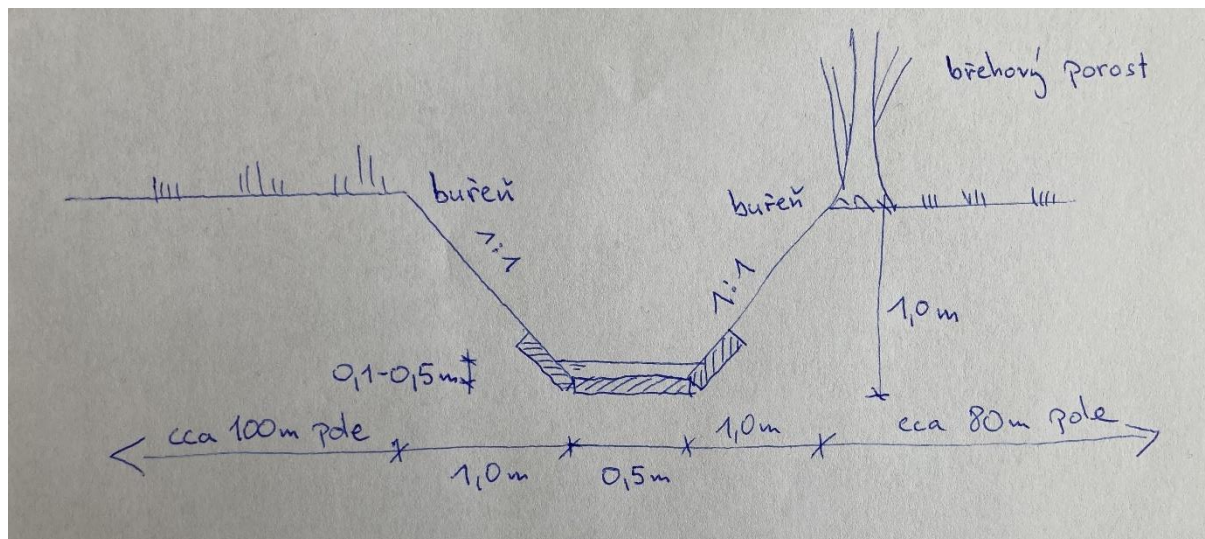 břehový porost
buřeň
buřeň
1:1
1:1
1,0m
0,1-0,5m
cca 100m pole
1,0m
cca 80m pole
1,0m
0,5m